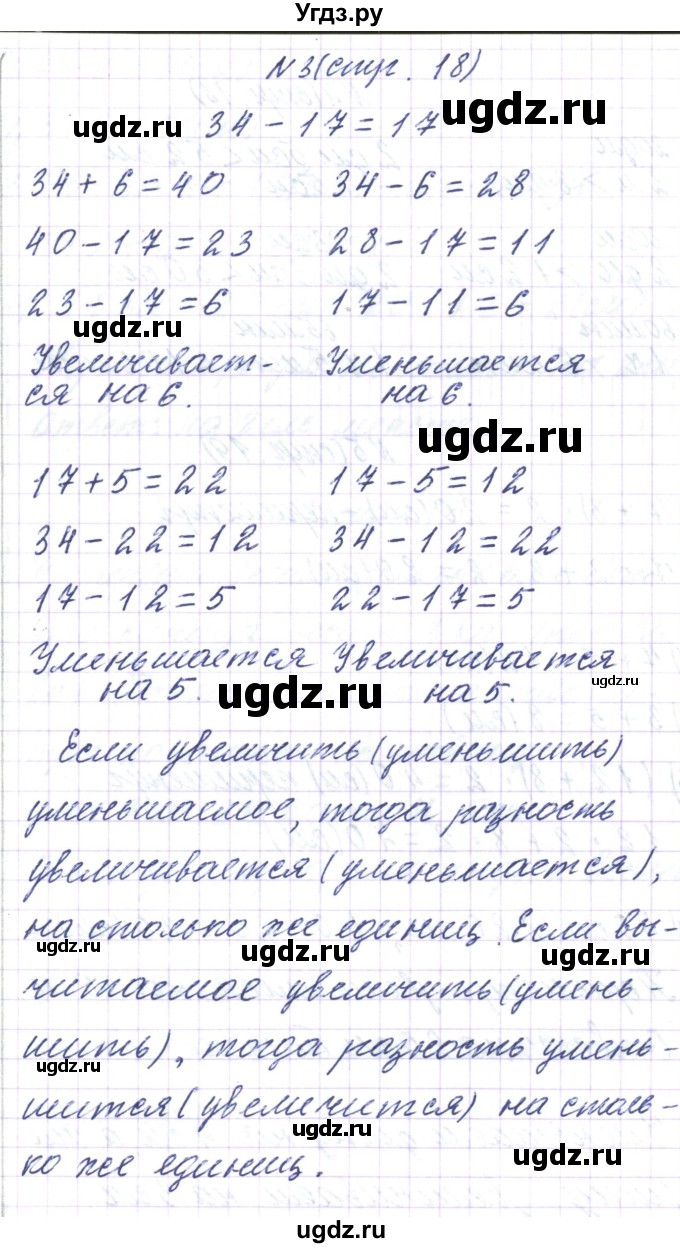 Угдз.ру
N3(стр. 18)
ugdz.ru 34 - 17 = 17 ugdz.ru
34 + 6 = 40 34 - 6 = 28
40 - 17 = 23 28 - 17 = 11
23 - 17 = 6 17 - 11 = 6
ugdz.ru
Увеличивает- Уменьшается
ся на 6. на 6.
ugdz.ru
17 + 5 = 22 17 - 5 = 12
34 - 22 = 12 34 - 12 = 22
17 - 12 = 5 22 - 17 = 5
Уменьшается Увеличивается
на 5. ugdz.ru на 5. ugdz.ru
Если увеличить (уменьшить)
уменьшаемое, тогда разность
увеличивается (уменьшается),
на столько же единиц. Если вы-
ugdz.ru ugdz.ru ugdz.ru
читаемое увеличить (умень-
шить), тогда разность умень-
ugdz.ru
шится (увеличится) на столь-
ugdz.ru
ко же единиц. ugdz.ru
ugdz.ru